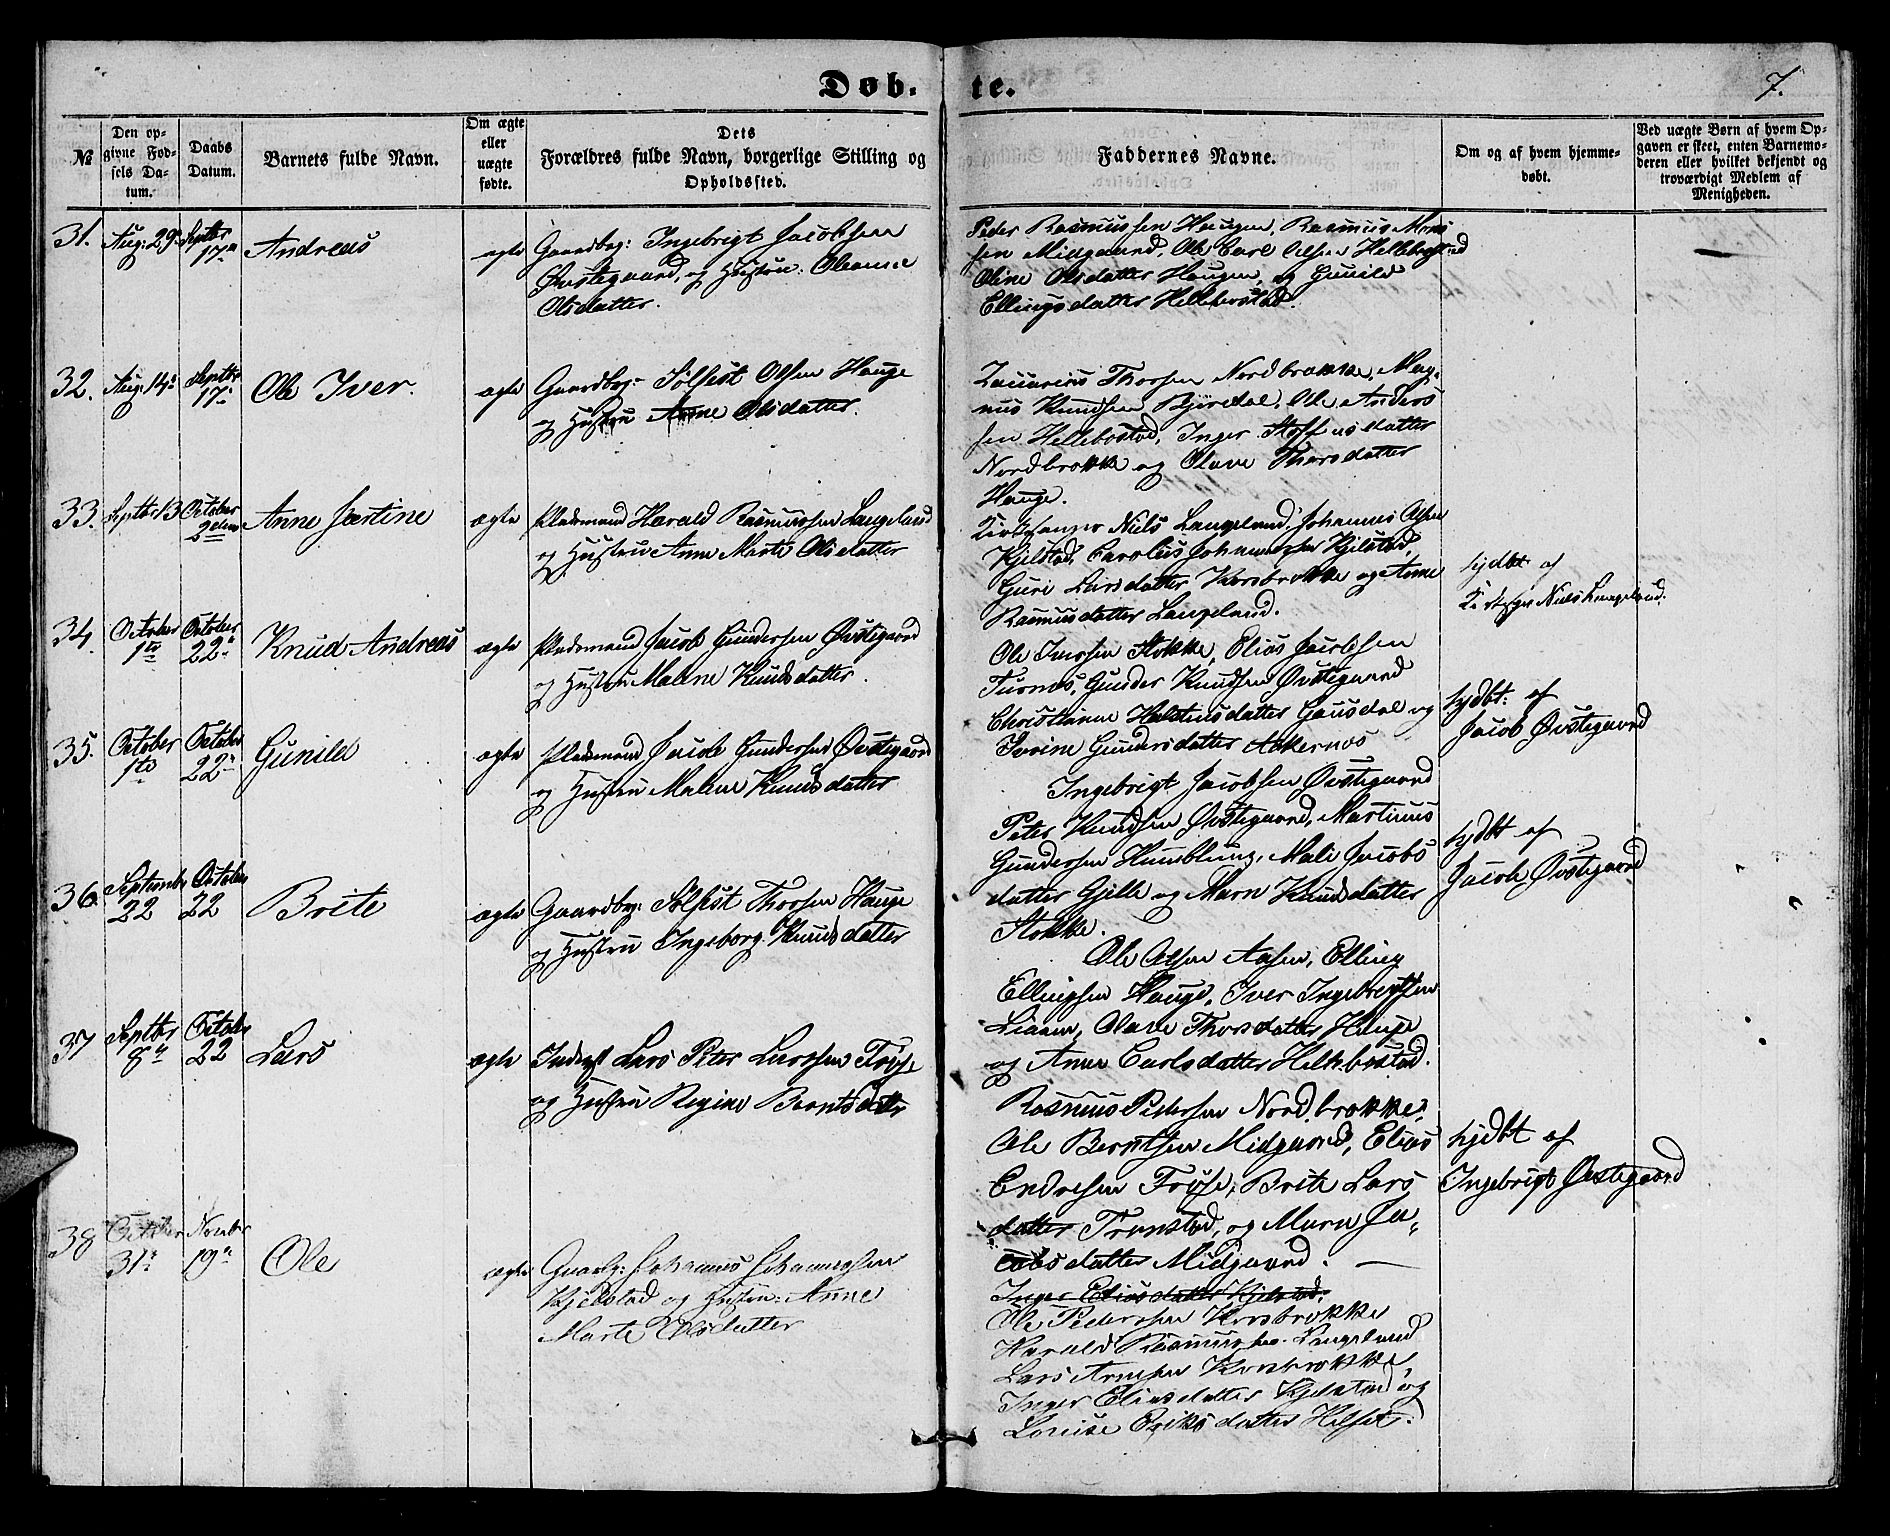 Døb-
te.
7.
№
Den op-
givne Fød-
sels Da-
tum.
Daabs
Datum.
Barnets fulde Navn.
Om ægte
eller
uægte
fødte.
Dets
Forældres fulde Navn, borgerlige Stilling og
Opholdssted.
Faddernes Navne.
Om og af hvem hjemme-
døbt.
Ved uægte Børn af hvem Op-
gaven er skeet, enten Barnemo-
deren eller hvilket bekjendt og
troværdigt Medlem af
Menigheden.
31.
Aug: 29
Septbr
17
Andreas
ægte
Gaardbrg: Ingebrigt Jacobsen
Øvstegaard, og Hustru: Oleanne
Olsdatter.
Peder Rasmussen Haugen, Rasmus Mons
sen Midgaard, Ole Carl Olsen Hellebostad
Oline Olsdatter Haugen, og Gunild
Ellingsdatter Hellebostad.
32.
Aug: 14
Septbr
17
Ole Iver.
ægte
Gaardbrg: Sølfest Olsen Hauge
og Hustru Anne Olsdatter.
Zacarias Thorsen Nordbrokke, Mag-
nus Knudsen Bjørdal, Ole Anders
sen Hellebostad, Inger Stoffersdatter
Nordbrokke og Olave Thorsdatter
Hauge.
33.
Septbr 13
October
2den
Anne Jertine
ægte
Pladsmand Harald Rasmussen Langeland
og Hustru Anne Marte Olsdatter
Kirkesanger Niels Langeland, Johannes Olsen
Kjelstad, Carolus Johannessen Kjelstad,
Guri Larsdatter Korsbrokke og Anne
Rasmusdatter Langeland.
hjdbt af
Kirkesgr Niels Langeland.
34.
October
1te
October
22
Knud Andreas
ægte
Pladsmand Jacob Gundersen Øvstegaard
og Hustru Malene Knudsdatter.
Ole Iversen Stokke, Elias Jacobsen
Turnes, Gunder Knudsen Øvstegaard
Christianne Halstensdatter Gausdal og
Iverine Gundersdatter Aakernes
hjdbt: af
Jacob Øvstegaard
35.
October
1te
October
22
Gunild
ægte
Pladsmand Jacob Gundersen Øvstegaard
og Hustru Malene Knudsdatter
Ingebrigt Jacobsen Øvstegaard
Peter Knudsen Øvstegaard, Martinus
Gundersen Humblung, Mali Jacobs
datter Gjelle og Marn Knudsdatter
Stokke.
hjdbt af
Jacob Øvstegaard
36
Septembr
22
October
22
Brite
ægte
Gaardbrg: Sølfest Thorsen Hauge
og Hustru Ingeborg Knudsdatter
Ole Olsen Aasen, Elling
Ellingsen Hauge, Iver Ingebrigtsen
Liaaen, Olave Thorsdatter Hauge
og Anne Carlsdatter Hellebostad.
37
Septbr
8
October
22
Lars
ægte
Inderst Lars Peter Larssen Frøy-
og Hustru Regine Berntsdatter
Rasmus Pedersen Nordbrokke,
Ole Berntsen Midgaard, Elias
Endresen Frøyse, Brite Lars
datter Tronstad, og Marn Ja-
cobsdatter Midgaard.
hjdbt af
Ingebrigt Øvstegaard
38
October
31
Novbr
19
Ole
ægte
Gaardbrg: Johannes Johannessen
Kjelstad og Hustru: Anne
Marte Olsdatter
Inger Eliasdatter Kjelstad,
Ole Pedersen Korsbrokke
Harald Rasmussen Langeland
Lars Arnesen Korsbrokke,
Inger Eliasdatter Kjelstad og
Lovise Eriksdatter Helset.